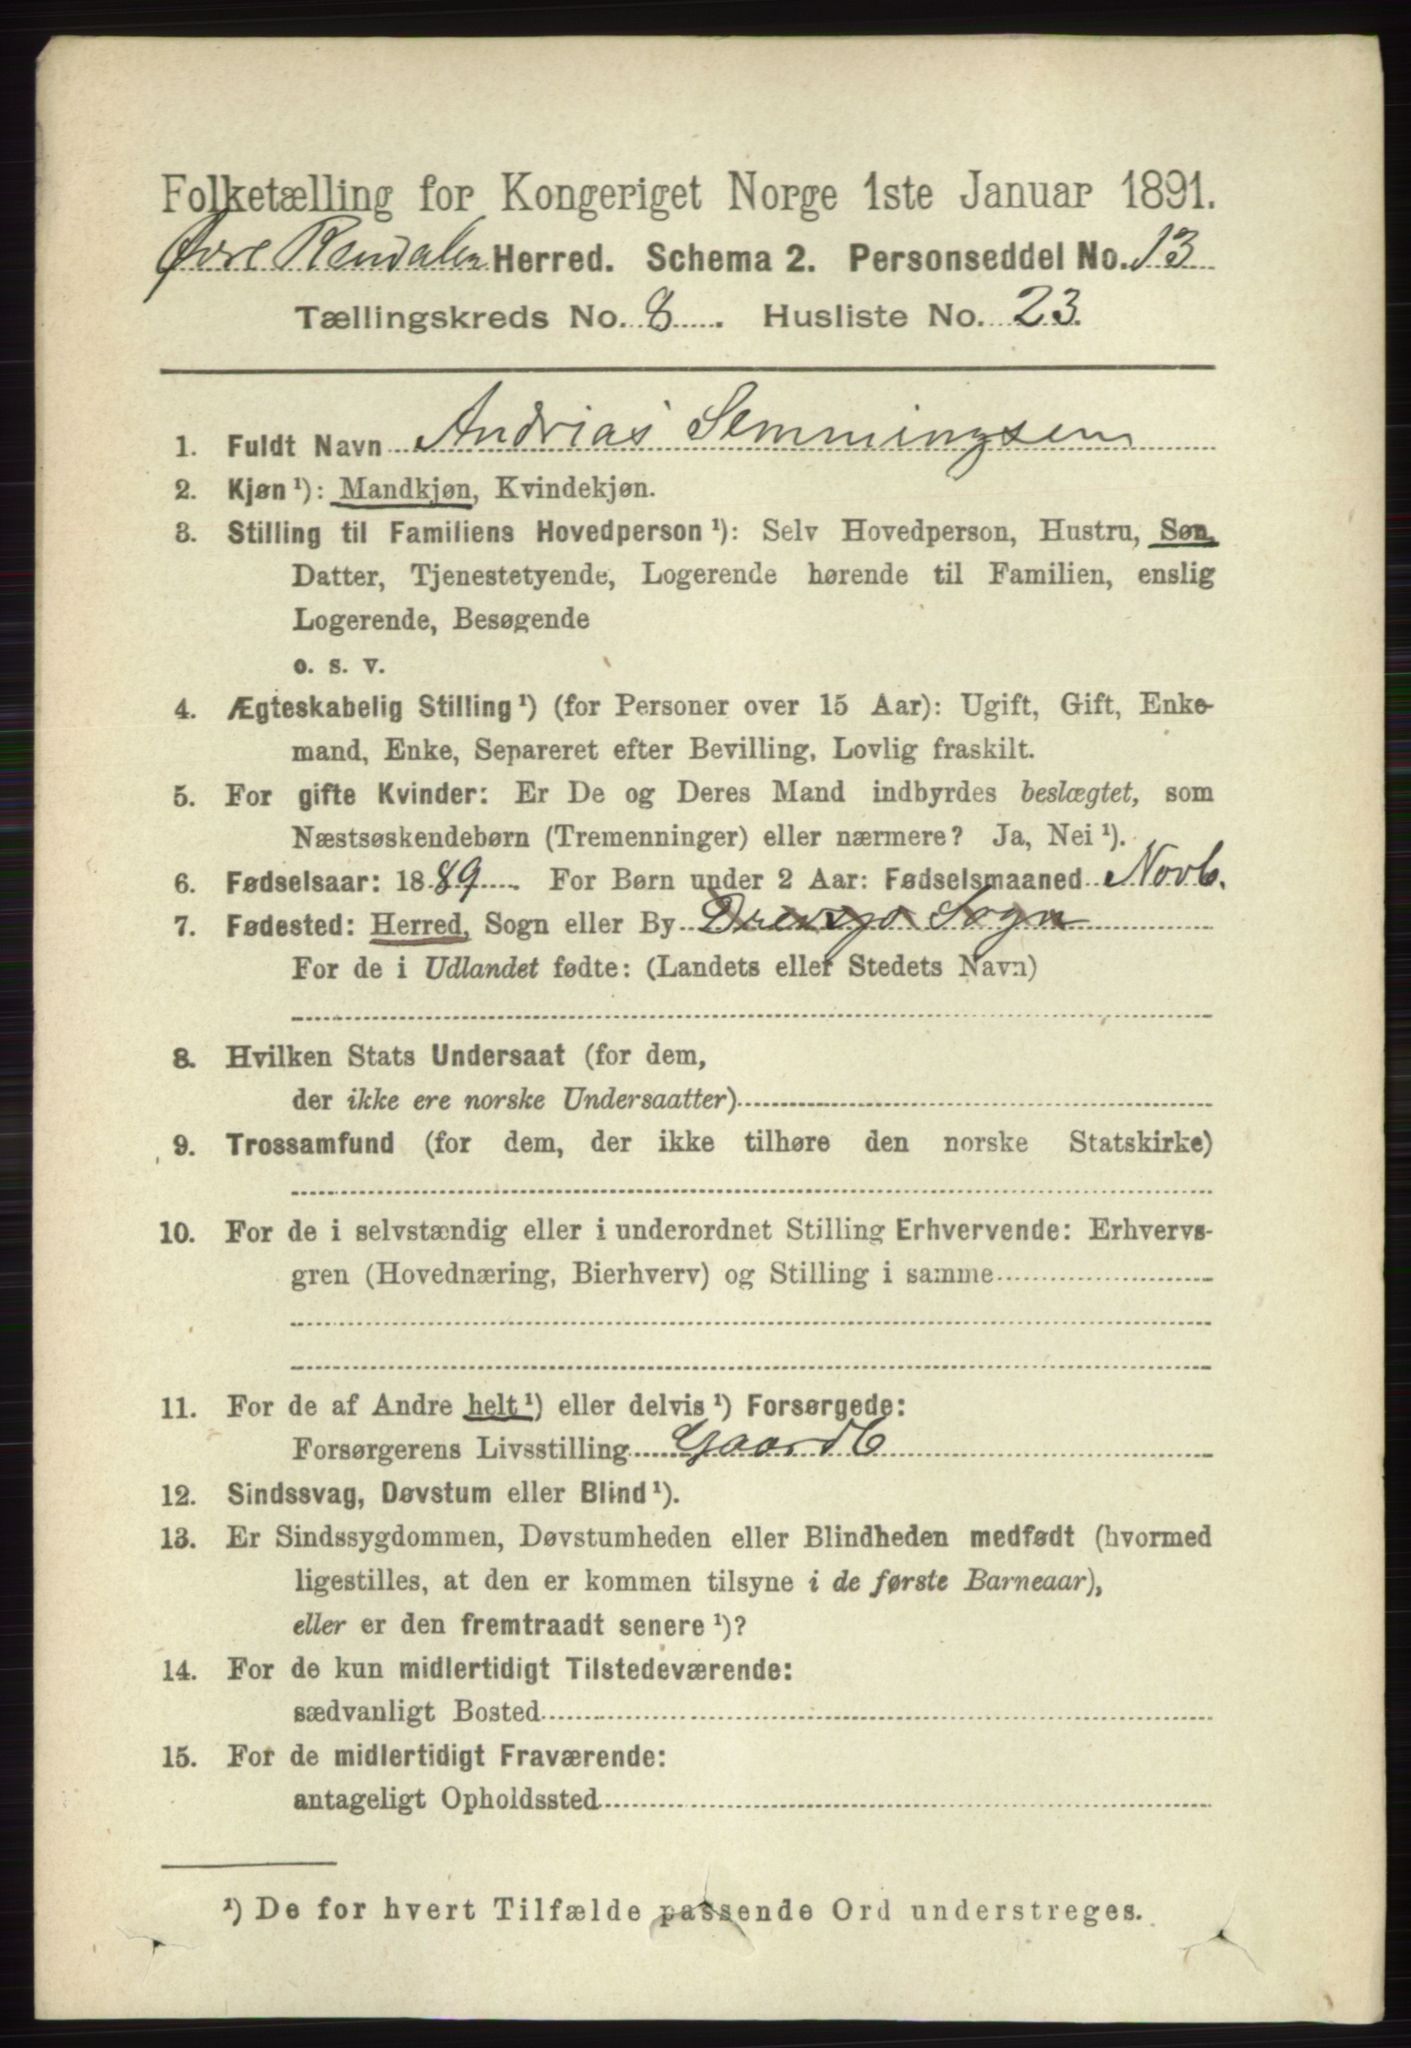 Folketælling for Kongeriget Norge 1ste Januar 1891.
Øvre Rendalen Herred. Schema 2. Personseddel No. 13
Tællingskreds No. 8. Husliste No. 23.
1. Fuldt Navn Andrias Semmingsen
2. Kjøn ¹): Mandkjøn, Kvindekjøn.
3. Stilling til Familiens Hovedperson ¹): Selv Hovedperson, Hustru, Søn,
Datter, Tjenestetyende, Logerende hørende til Familien, enslig
Logerende, Besøgende
o. s. v.
4. Ægteskabelig Stilling ¹) (for Personer over 15 Aar): Ugift, Gift, Enke-
mand, Enke, Separeret efter Bevilling, Lovlig fraskilt.
5. For gifte Kvinder: Er De og Deres Mand indbyrdes beslægtet, som
Næstsøskendebørn (Tremenninger) eller nærmere? Ja, Nei ¹).
6. Fødselsaar: 1889. For Børn under 2 Aar: Fødselsmaaned Novb.
7. Fødested: Herred, Sogn eller By Drevsjo Sogn
For de i Udlandet fødte: (Landets eller Stedets Navn)
8. Hvilken Stats Undersaat (for dem,
der ikke ere norske Undersaatter)
9. Trossamfund (for dem, der ikke tilhøre den norske Statskirke)
10. For de i selvstændig eller i underordnet Stilling Erhvervende: Erhvervs-
gren (Hovednæring, Bierhverv) og Stilling i samme
11. For de af Andre helt ¹) eller delvis ¹) Forsørgede:
Forsørgerens Livsstilling Gaardb
12. Sindssvag, Døvstum eller Blind ¹).
13. Er Sindssygdommen, Døvstumheden eller Blindheden medfødt (hvormed
ligestilles, at den er kommen tilsyne i de første Barneaar),
eller er den fremtraadt senere ¹)?
14. For de kun midlertidigt Tilstedeværende:
sædvanligt Bosted
15. For de midlertidigt Fraværende:
antageligt Opholdssted
¹) De for hvert Tilfælde passende Ord understreges.